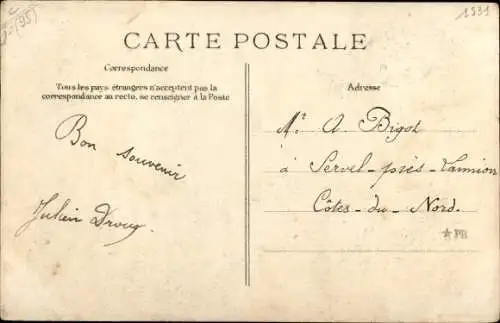 1931
(95)
CARTE POSTALE
Correspondance
Tous les pays étrangers n'acceptent pas la
correspondance au recto, se renseigner à la Poste
Adresse
Bon souvenir
Julien
Mr A. Bigot
à Servel-près-Lannion
Côtes-du-Nord.
PB